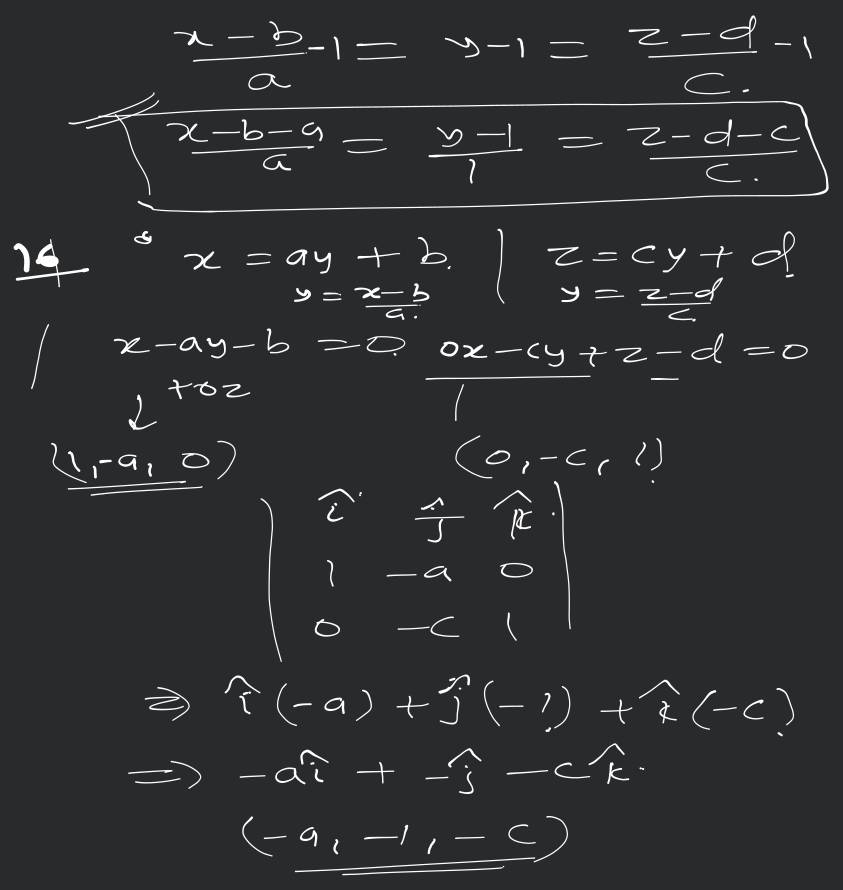 (x-b)/a - 1 = y-1 = (z-d)/c. - 1
(x-b-a)/a = (y-1)/1 = (z-d-c)/c.
16 x = ay + b. | z = cy + d
y = (x-b)/a. y = (z-d)/c
x-ay-b = 0 0x-cy+z-d = 0
+0z
(1,-a, 0) (0,-c, 1)
î ĵ k̂
1 -a 0
0 -c 1
⇒ î(-a) + ĵ(-1) + k̂(-c)
⇒ -aî + -ĵ - ck̂.
(-a, -1, -c)